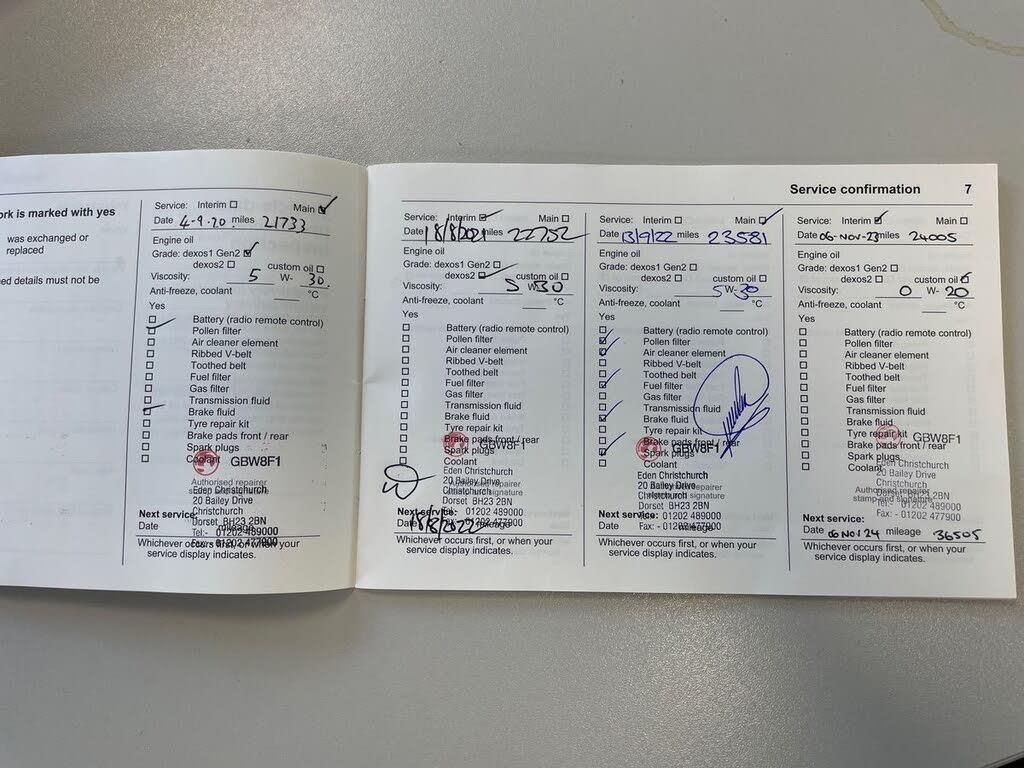 ork is marked with yes
was exchanged or
replaced
ed details must not be
Service: Interim Main
Date 4-9-20 miles 21733
Engine oil
Grade: dexos1 Gen2
dexos2 custom oil
Viscosity: 5 W- 30
Anti-freeze, coolant °C
Yes
Battery (radio remote control)
Pollen filter
Air cleaner element
Ribbed V-belt
Toothed belt
Fuel filter
Gas filter
Transmission fluid
Brake fluid
Tyre repair kit
Brake pads front / rear
Spark plugs
Coolant
GBW8F1
Authorised repairer
Eden Christchurch
20 Bailey Drive
Christchurch
Dorset BH23 2BN
Tel:- 01202 489000
Fax:- 01202 477900
Next service:
Date mileage
Whichever occurs first, or when your
service display indicates.
Service confirmation 7
Service: Interim Main
Date 18/8/2021 miles 22752
Engine oil
Grade: dexos1 Gen2
dexos2 custom oil
Viscosity: 5 W- 30
Anti-freeze, coolant °C
Yes
Battery (radio remote control)
Pollen filter
Air cleaner element
Ribbed V-belt
Toothed belt
Fuel filter
Gas filter
Transmission fluid
Brake fluid
Tyre repair kit
Brake pads front / rear
Spark plugs
Coolant
GBW8F1
Eden Christchurch
20 Bailey Drive
Christchurch
Dorset BH23 2BN
01202 489000
01202 477900
Next service:
Date 18/8/2022 mileage
Whichever occurs first, or when your
service display indicates.
Service: Interim Main
Date 13/9/22 miles 23581
Engine oil
Grade: dexos1 Gen2
dexos2 custom oil
Viscosity: 5 W- 30
Anti-freeze, coolant °C
Yes
Battery (radio remote control)
Pollen filter
Air cleaner element
Ribbed V-belt
Toothed belt
Fuel filter
Gas filter
Transmission fluid
Brake fluid
Tyre repair kit
Brake pads front / rear
Spark plugs
Coolant
GBW8F1
Eden Christchurch
20 Bailey Drive
Christchurch
Dorset BH23 2BN
Tel:- 01202 489000
Fax:- 01202 477900
Next service:
Date mileage
Whichever occurs first, or when your
service display indicates.
Service: Interim Main
Date 06-NOV-23 miles 24005
Engine oil
Grade: dexos1 Gen2
dexos2 custom oil
Viscosity: 0 W- 20
Anti-freeze, coolant °C
Yes
Battery (radio remote control)
Pollen filter
Air cleaner element
Ribbed V-belt
Toothed belt
Fuel filter
Gas filter
Transmission fluid
Brake fluid
Tyre repair kit
Brake pads front / rear
Spark plugs
Coolant
GBW8F1
Eden Christchurch
20 Bailey Drive
Authorised repairer
stamp and signature
Dorset BH23 2BN
Tel:- 01202 489000
Fax:- 01202 477900
Next service:
Date 06 NOV 24 mileage 36505
Whichever occurs first, or when your
service display indicates.